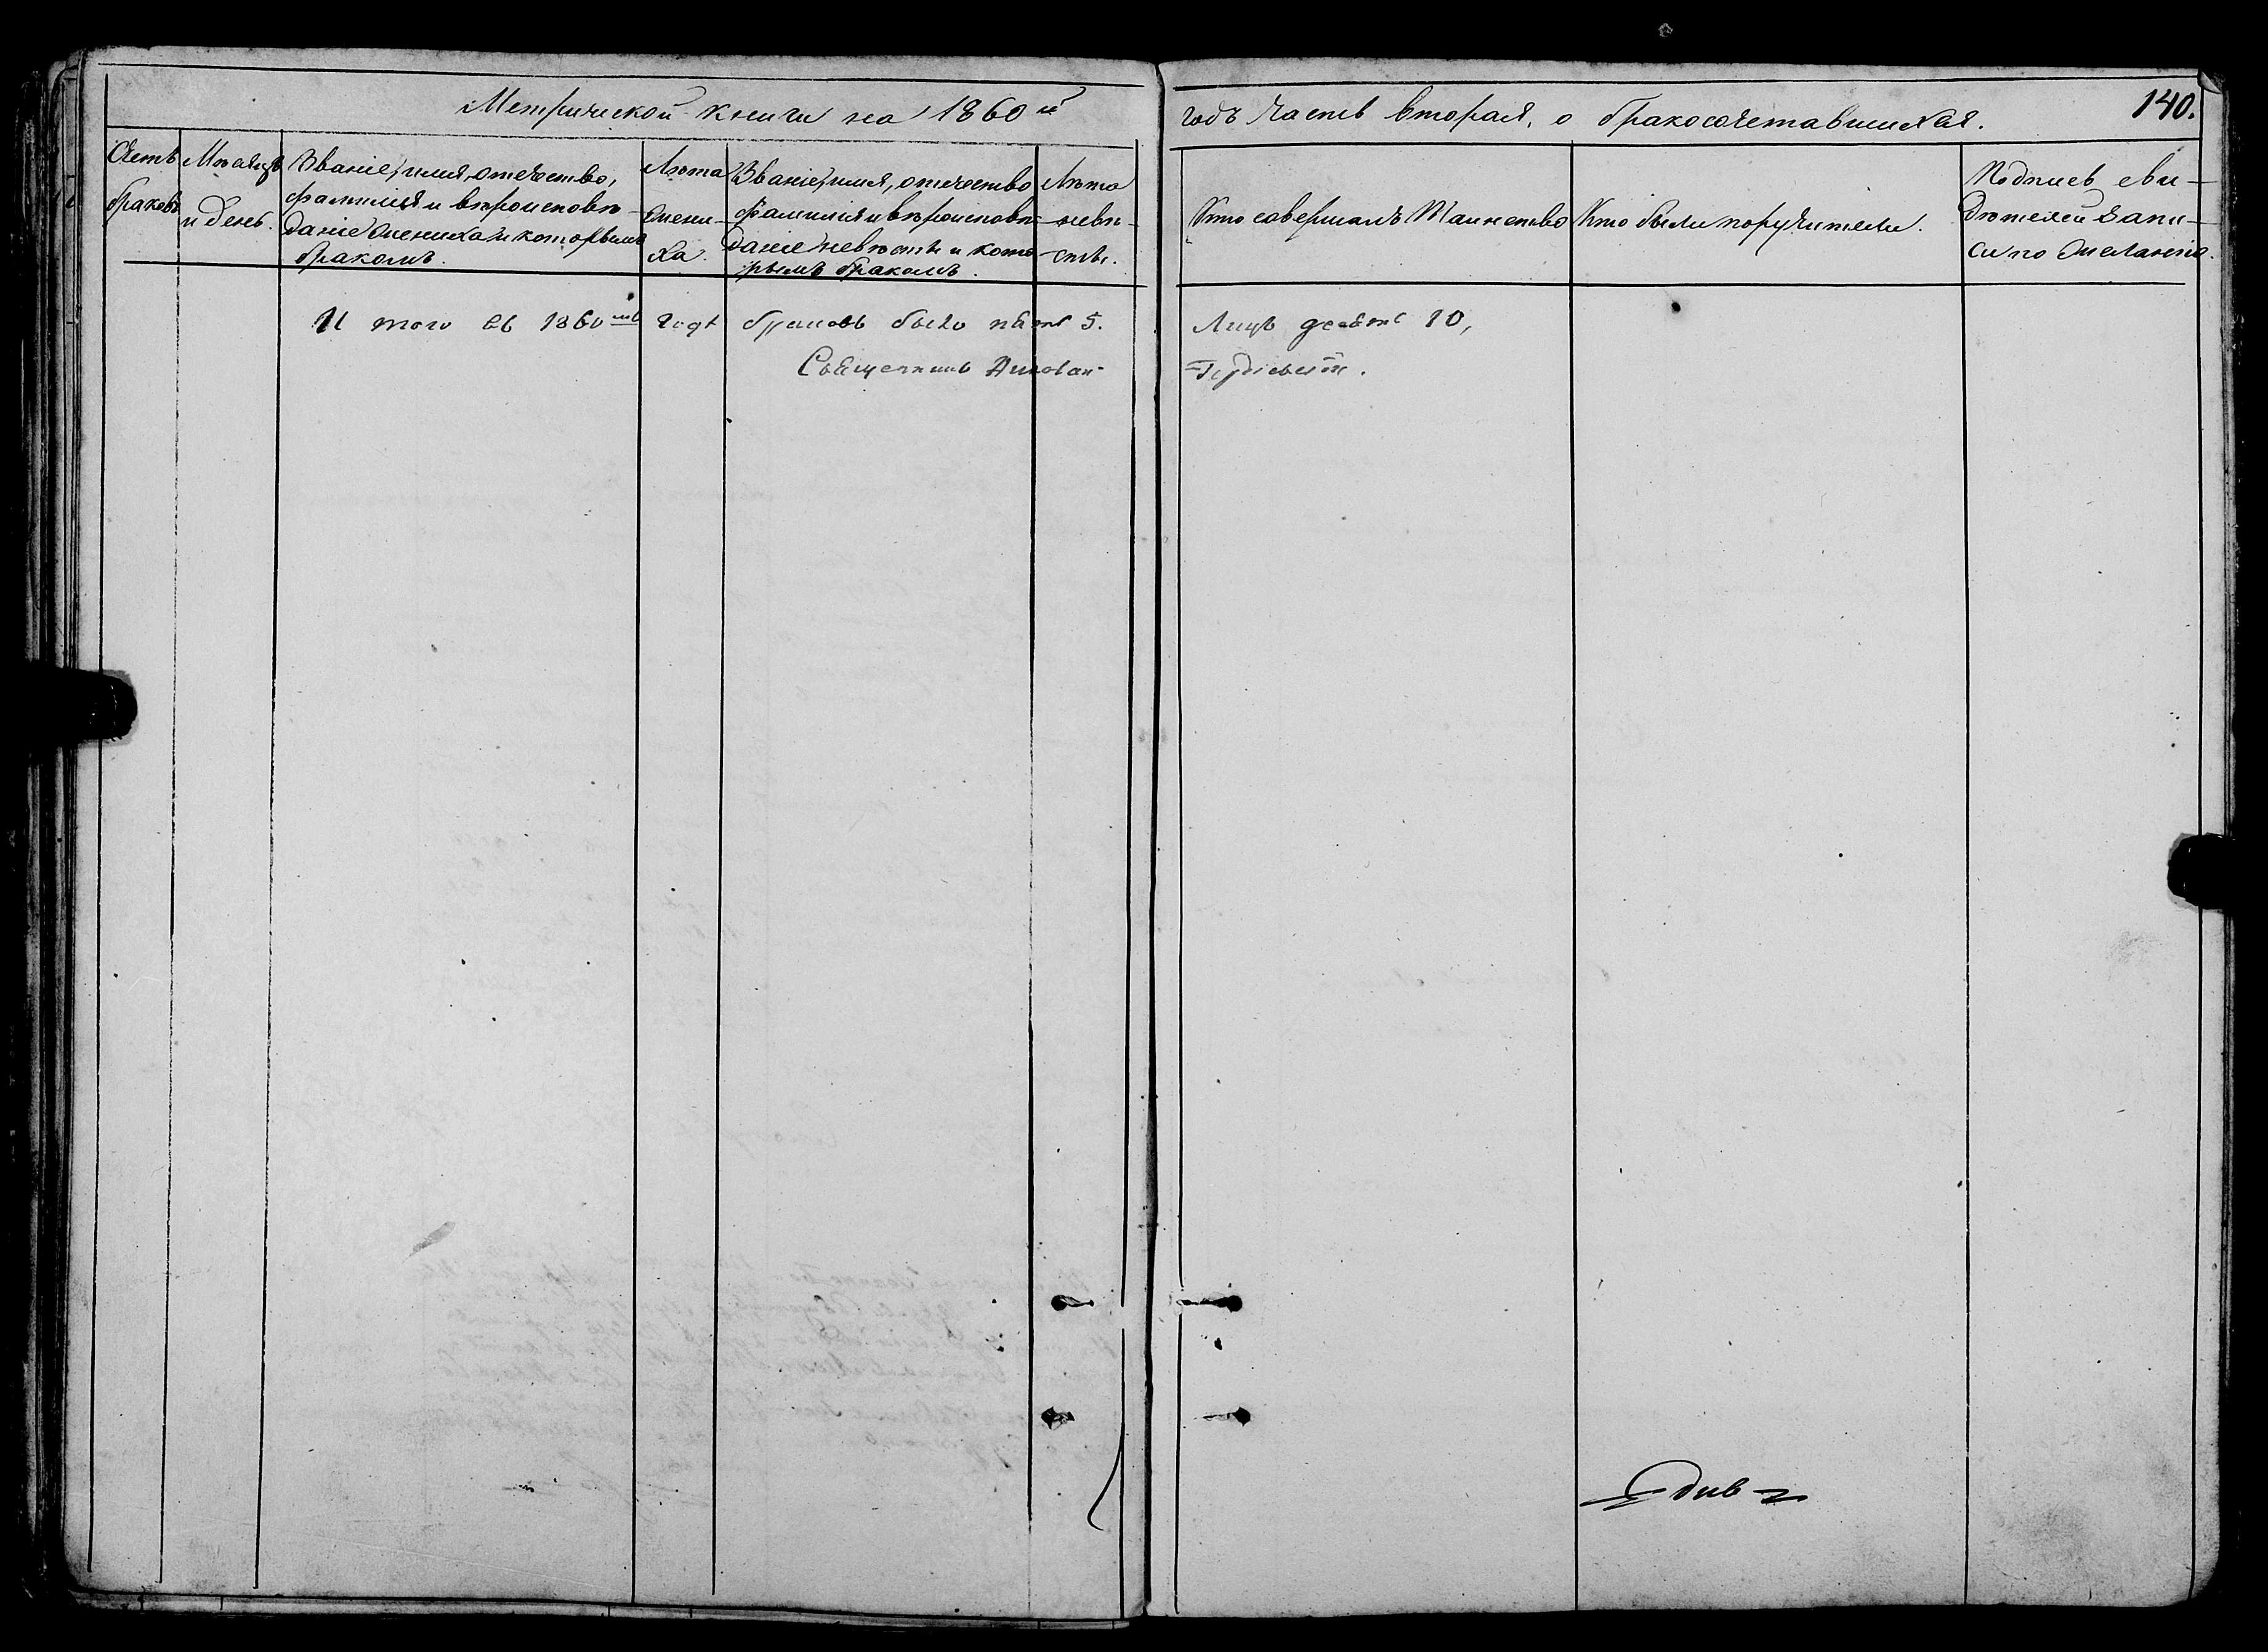 Метрической книги на 1860й годъ часть вторая, о бракосочетавшихся.
140.
Счетъ браковъ
Мѣсяцъ и день.
Званіе, имя, отчество,
фамилія и вѣроисповѣ-
даніе жениха и которымъ
бракомъ.
Лѣта
жени-
ха.
Званіе, имя, отчество
фамилія и вѣроисповѣ-
даніе невѣсты и кото
рымъ бракомъ.
Лѣта
невѣ-
сты.
Кто совершалъ Таинство
Кто были поручители.
Подпись сви-
дѣтелей запи-
си по желанію.
И того въ 1860мъ годѣ браковъ было пять 5. Лицъ десять 10,
Священникъ